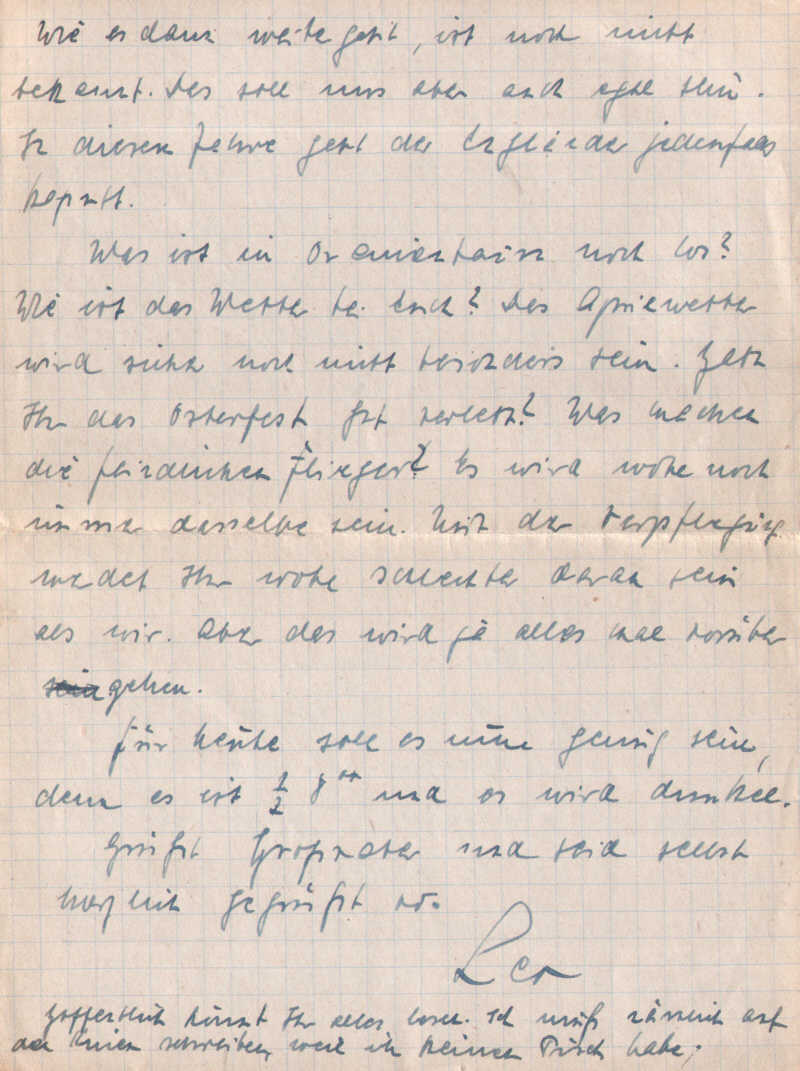 Wie es dann weitergeht, ist noch nicht
bekannt. Das soll uns aber auch egal sein.
In diesem Jahre geht der Engländer jedenfalls
kaputt.
Was ist in Oranienbaum noch los?
Wie ist das Wetter bei Euch? Das Aprilwetter
wird sicher noch nicht besonders sein. Habt
Ihr das Osterfest gut verlebt? Was machen
die feindlichen Flieger? Es wird wohl noch
immer dasselbe sein. Mit der Verpflegung
werdet Ihr wohl schlechter daran sein
als wir. Aber das wird ja alles mal vorüber
gehen.
Für heute soll es nun genug sein,
denn es ist ½ 8 und es wird dunkel.
Grüßt Großvater und seid selbst
herzlich gegrüßt von
Leo
Hoffentlich könnt Ihr alles lesen. Ich muß nämlich auf
den Knien schreiben, weil ich keinen Tisch habe.